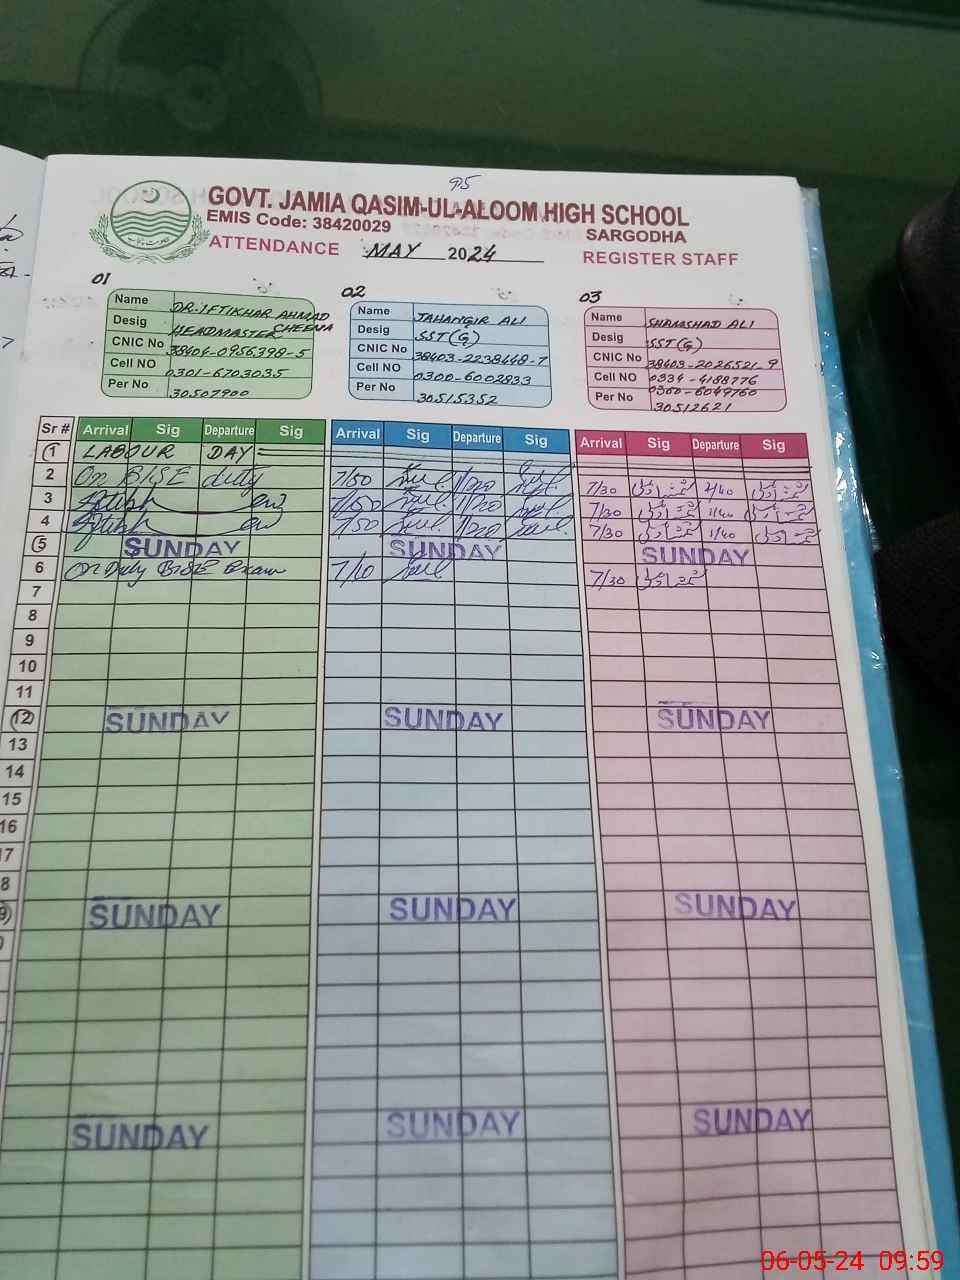 95
GOVT. JAMIA QASIM-UL-ALOOM HIGH SCHOOL
EMIS Code: 38420029
SARGODHA
ATTENDANCE MAY 2024 REGISTER STAFF
01
Name DR. IFTIKHAR AHMAD CHEENA
Desig HEADMASTER
CNIC No 38404-0956398-5
Cell NO 0301-6703035
Per No 30507900
02
Name JAHANGIR ALI
Desig SST(G)
CNIC No 38403-2238448-7
Cell NO 0300-6002833
Per No 30515352
03
Name SHAMSHAD ALI
Desig SST(G)
CNIC No 38403-2026521-9
Cell NO 0334-4188776
0300-6049760
Per No 30512621
Sr # Arrival Sig Departure Sig Arrival Sig Departure Sig Arrival Sig Departure Sig
1 LABOUR DAY
2 On BISE duty 7/50 7/30 1/40
3 7/50 7/30 1/40
4 7/50 7/30 1/40
5 SUNDAY SUNDAY SUNDAY
6 On Duty BISE Exam 7/10 7/30
7
8
9
10
11
12 SUNDAY SUNDAY SUNDAY
13
14
15
16
17
8
9 SUNDAY SUNDAY SUNDAY
0
SUNDAY SUNDAY SUNDAY
06-05-24 09:59